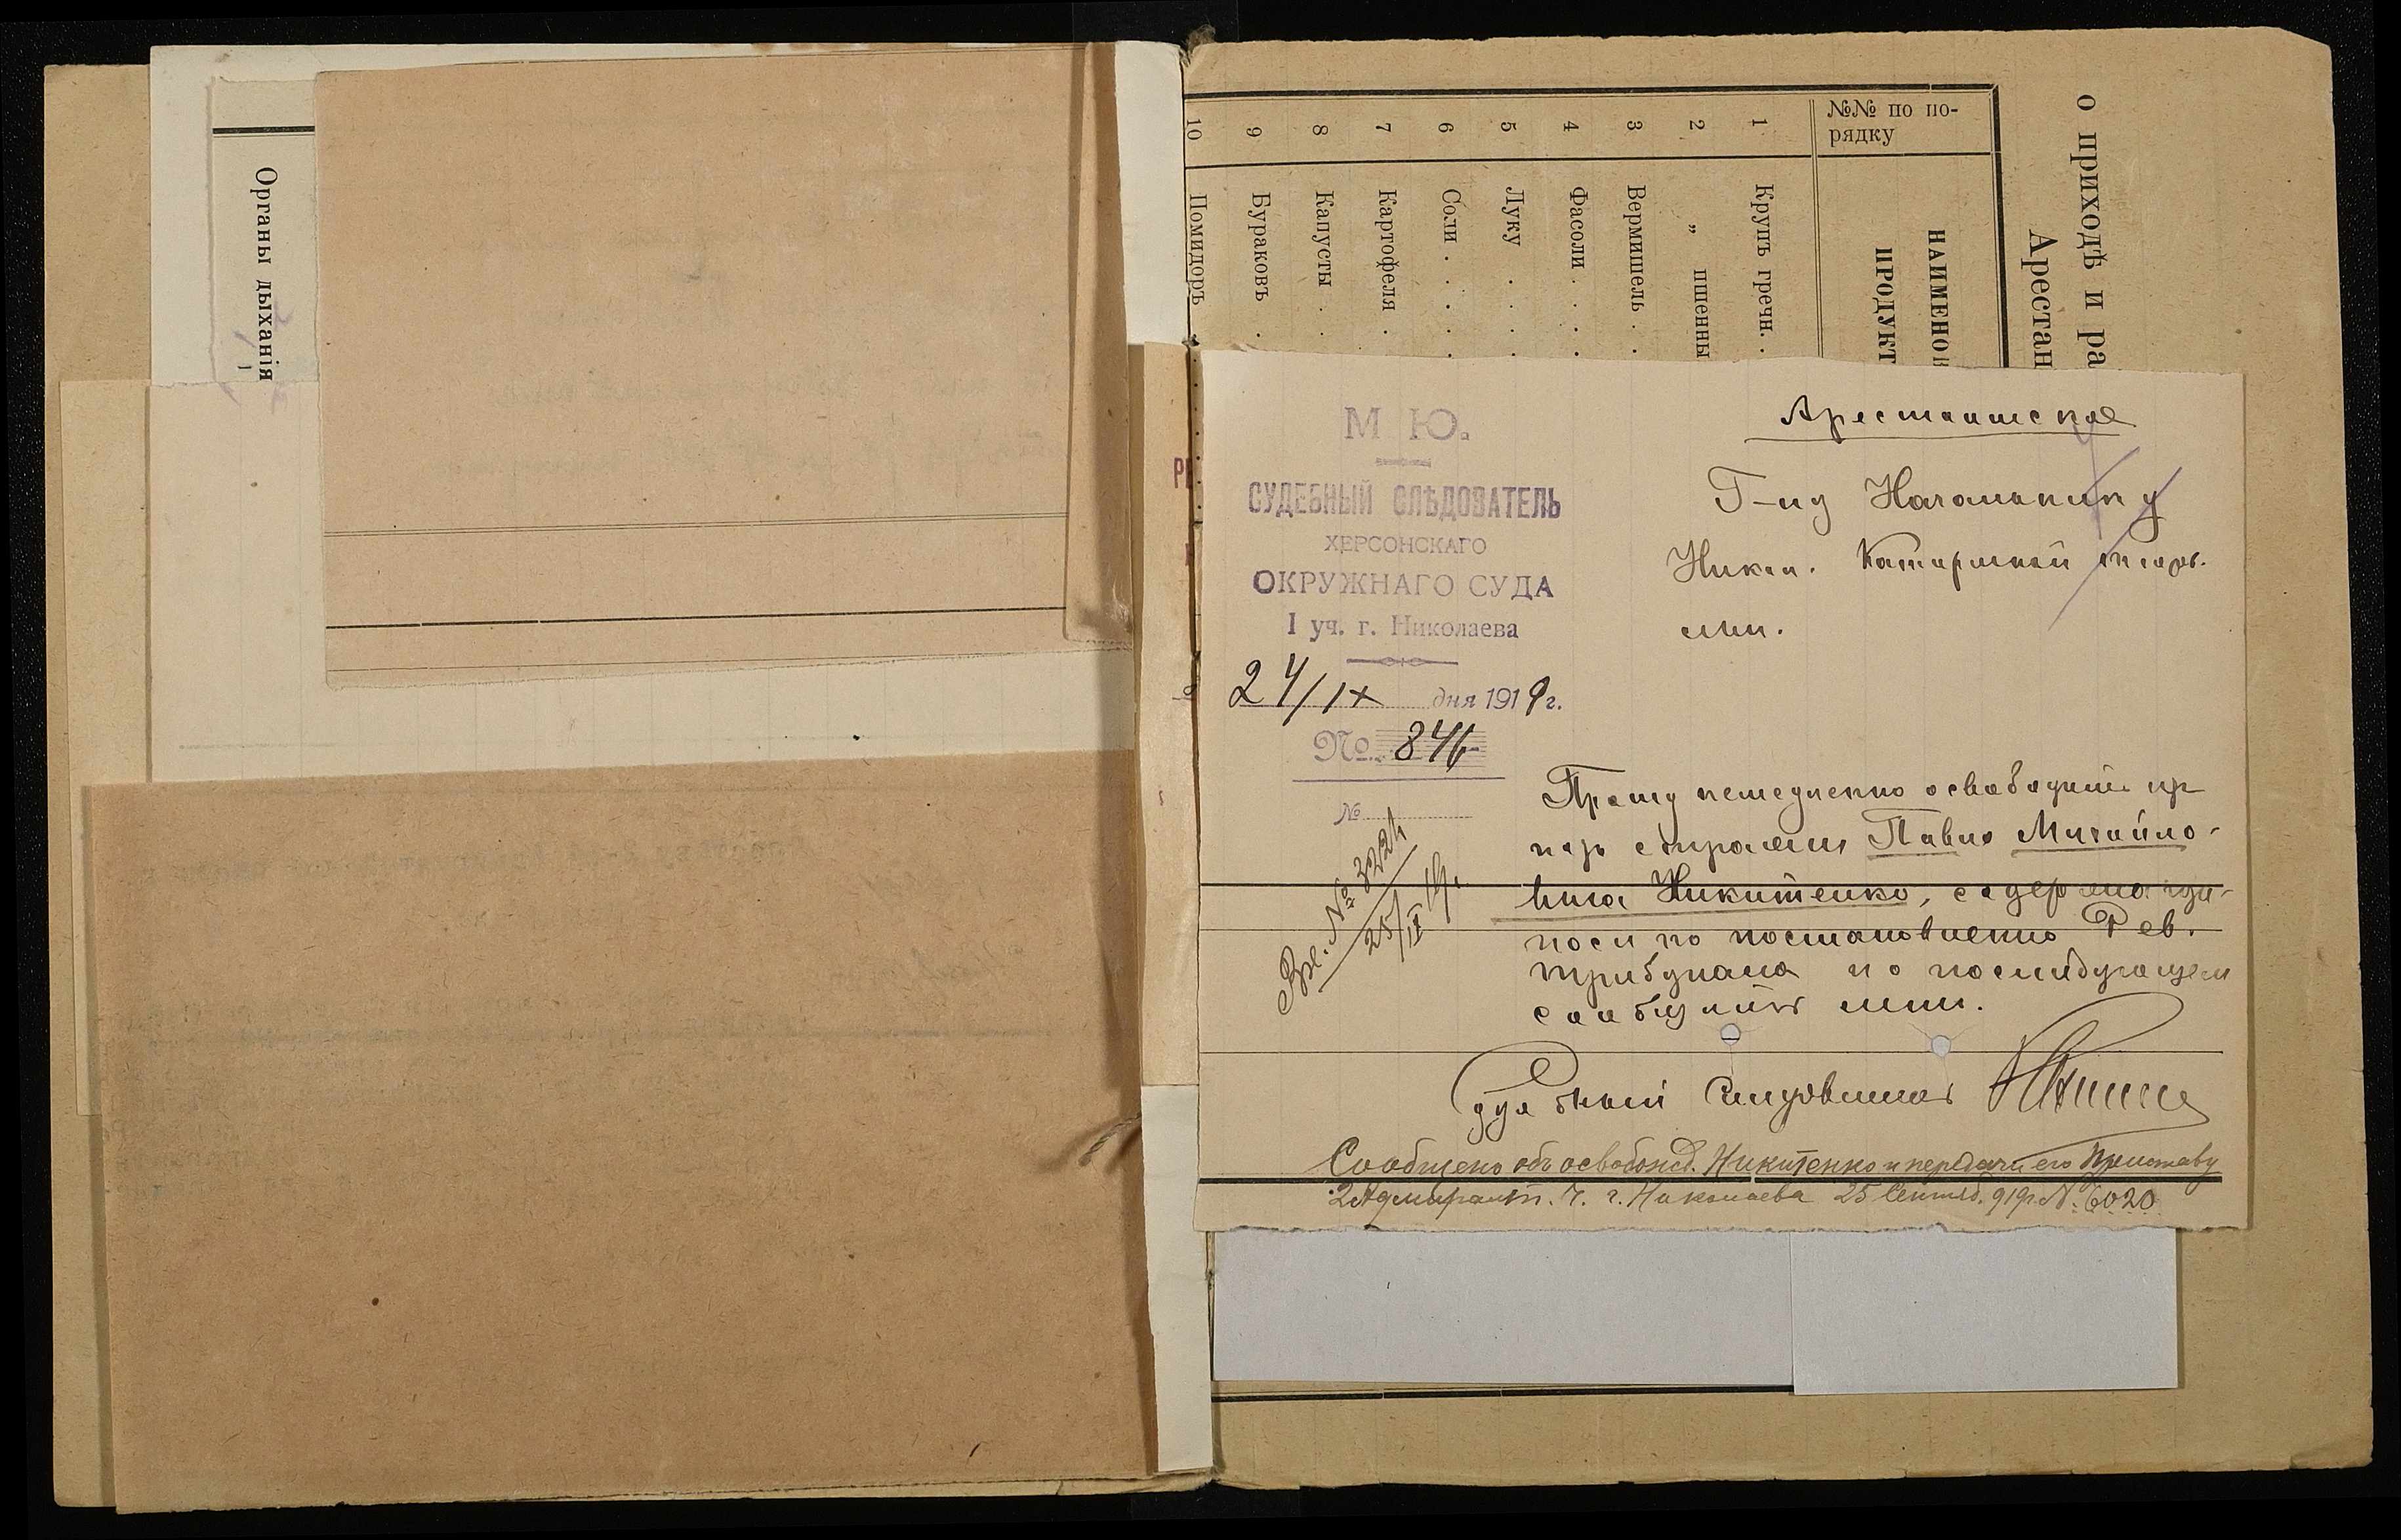 Органы дыханія
о приходѣ и ра
Арестан
№№ по по-
рядку
НАИМЕНО
ПРОДУКТ
1 Крупъ гречн. .
2 „ пшенны
3 Вермишель . .
4 Фасоли . . .
5 Луку . . .
6 Соли . . . .
7 Картофеля .
8 Капусты . .
9 Бураковъ .
10 Помидоръ .
М Ю.
СУДЕБНЫЙ СЛѢДОВАТЕЛЬ
ХЕРСОНСКАГО
ОКРУЖНАГО СУДА
I уч. г. Николаева
24/IX дня 1919 г.
№ 846
№
Вх. № 3224
25/IX 19 г.
Арестантское
Г-ну Начальнику
Никол. Каторжной тюрь-
мы.
Прошу немедленно освободить из
под стражи Павла Михайло-
вича Никитенко, содержаща-
гося по постановленію Рев.
трибунала и о послѣдующем
сообщить мнѣ.
Судебный Слѣдователь
Сообщено объ освобожд. Никитенко и передачи его Приставу
2 Адмиралт. ч. г. Николаева 25 Сентяб. 919 г. № 6020